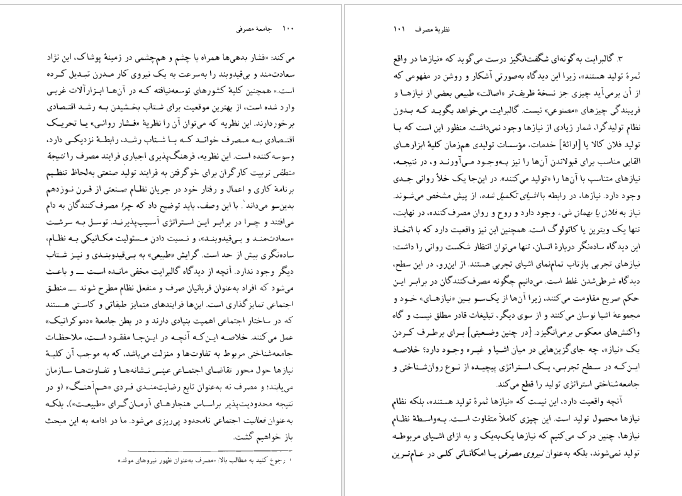 ۱۰۰ جامعهٔ مصرفی
می‌کند: «فشار بدهی‌ها همراه با چشم و هم‌چشمی در زمینهٔ پوشاک، این نژاد
سعادت‌مند و بی‌قیدوبند را به‌سرعت به یک نیروی کار مدرن تبدیل کرده
است.» همچنین کلیهٔ کشورهای توسعه‌نیافته که در آن‌ها ابزارآلات غربی
وارد شده است، از بهترین موقعیت برای شتاب بخشیدن به رشد اقتصادی
برخوردارند. این نظریه که می‌توان آن را نظریهٔ «فشار روانی» یا تحریک
اقتصادی به مصرف خواند که با شتاب رشد، رابطهٔ نزدیکی دارد،
وسوسه‌کننده است. این نظریه، فرهنگ‌پذیری اجباری فرایند مصرف را نتیجهٔ
منطقی تربیت کارگران برای خوگرفتن به فرایند تولید صنعتی به‌لحاظ تنظیم
برنامهٔ کاری و اعمال و رفتار خود در جریان نظام صنعتی از قرن نوزدهم
بدین‌سو می‌داند.۱ با این وصف، باید توضیح داد که چرا مصرف‌کنندگان به دام
می‌افتند و چرا در برابر این استراتژی آسیب‌پذیرند. توسل به سرشت
«سعادت‌مند و بی‌قیدوبند»، و نسبت دادن مسئولیت مکانیکی به نظام،
ساده‌نگری بیش از حد است. گرایش «طبیعی» به بی‌قیدوبندی و نیز شتاب
دیگر وجود ندارد. آنچه از دیدگاه گالبرایت مخفی مانده است ـــ و باعث
می‌شود که افراد به‌عنوان قربانیان صرف و منفعل نظام مطرح شوند ـــ منطق
اجتماعی تمایزگذاری است. این‌ها فرایندهای متمایز طبقاتی و کاستی هستند
که در ساختار اجتماعی اهمیت بنیادی دارند و در بطن جامعهٔ «دموکراتیک»
عمل می‌کنند. خلاصه این‌که آنچه در این‌جا مفقود است، ملاحظات
جامعه‌شناختی مربوط به تفاوت‌ها و منزلت می‌باشد، که به موجب آن کلیهٔ
نیازها حول محور تقاضای اجتماعی عینی نشانه‌ها و تفاوت‌ها سازمان
می‌یابند؛ و مصرف نه به‌عنوان تابع رضایت‌مندی فردی «هم‌آهنگ» (و در
نتیجه محدودیت‌پذیر براساس هنجارهای آرمان‌گرای «طبیعت»)، بلکه
به‌عنوان فعالیت اجتماعی نامحدود پی‌ریزی می‌شود. ما در ادامه به این مبحث
باز خواهیم گشت.
۱. رجوع کنید به مطالب بالا: «مصرف به‌عنوان ظهور نیروهای مولد»
نظریهٔ مصرف ۱۰۱
۳. گالبرایت به‌گونه‌ای شگفت‌انگیز درست می‌گوید که «نیازها در واقع
ثمرهٔ تولید هستند»، زیرا این دیدگاه به‌صورتی آشکار و روشن در مفهومی که
از آن برمی‌آید چیزی جز نسخهٔ ظریف‌تر «اصالت» طبیعی بعضی از نیازها و
فریبندگی چیزهای «مصنوعی» نیست. گالبرایت می‌خواهد بگوید که بدون
نظام تولیدگرا، شمار زیادی از نیازها وجود نمی‌داشت. منظور این است که با
تولید فلان کالا یا [ارائهٔ] خدمات، مؤسسات تولیدی هم‌زمان کلیهٔ ابزارهای
القایی مناسب برای قبولاندن آن‌ها را نیز به‌وجود می‌آورند و، در نتیجه،
نیازهای متناسب با آن‌ها را «تولید می‌کنند». در این‌جا یک خلأ روانی جدی
وجود دارد. نیازها، در رابطه با اشیای تکمیل شده، از پیش مشخص می‌شوند.
نیاز به فلان یا بهمان شیء وجود دارد و روح و روان مصرف‌کننده، در نهایت،
تنها یک ویترین یا کاتولوگ است. همچنین این نیز واقعیت دارد که با اتخاذ
این دیدگاه ساده‌نگر دربارهٔ انسان، تنها می‌توان انتظار شکست روانی را داشت:
نیازهای تجربی بازتاب تمام‌نمای اشیای تجربی هستند. از این‌رو، در این سطح،
دیدگاه شرطی‌شدن غلط است. می‌دانیم چگونه مصرف‌کنندگان در برابر این
حکم صریح مقاومت می‌کنند، زیرا آن‌ها از یک‌سو بین «نیازهای» خود و
مجموعهٔ اشیا نوسان می‌کنند و از سوی دیگر، تبلیغات قادر مطلق نیست و گاه
واکنش‌های معکوس برمی‌انگیزد. [در چنین وضعیتی] برای برطرف کردن
یک «نیاز»، چه جای‌گزین‌هایی در میان اشیا و غیره وجود دارد؛ خلاصه
این‌که در سطح تجربی، یک استراتژی پیچیده از نوع روان‌شناختی و
جامعه‌شناختی استراتژی تولید را قطع می‌کند.
آنچه واقعیت دارد، این نیست که «نیازها ثمرهٔ تولید هستند»، بلکه نظام
نیازها محصول تولید است. این چیزی کاملاً متفاوت است. به‌واسطهٔ نظام
نیازها، چنین درک می‌کنیم که نیازها یک‌به‌یک و به ازای اشیای مربوطه
تولید نمی‌شوند، بلکه به‌عنوان نیروی مصرفی یا امکاناتی کلی در عام‌ترین